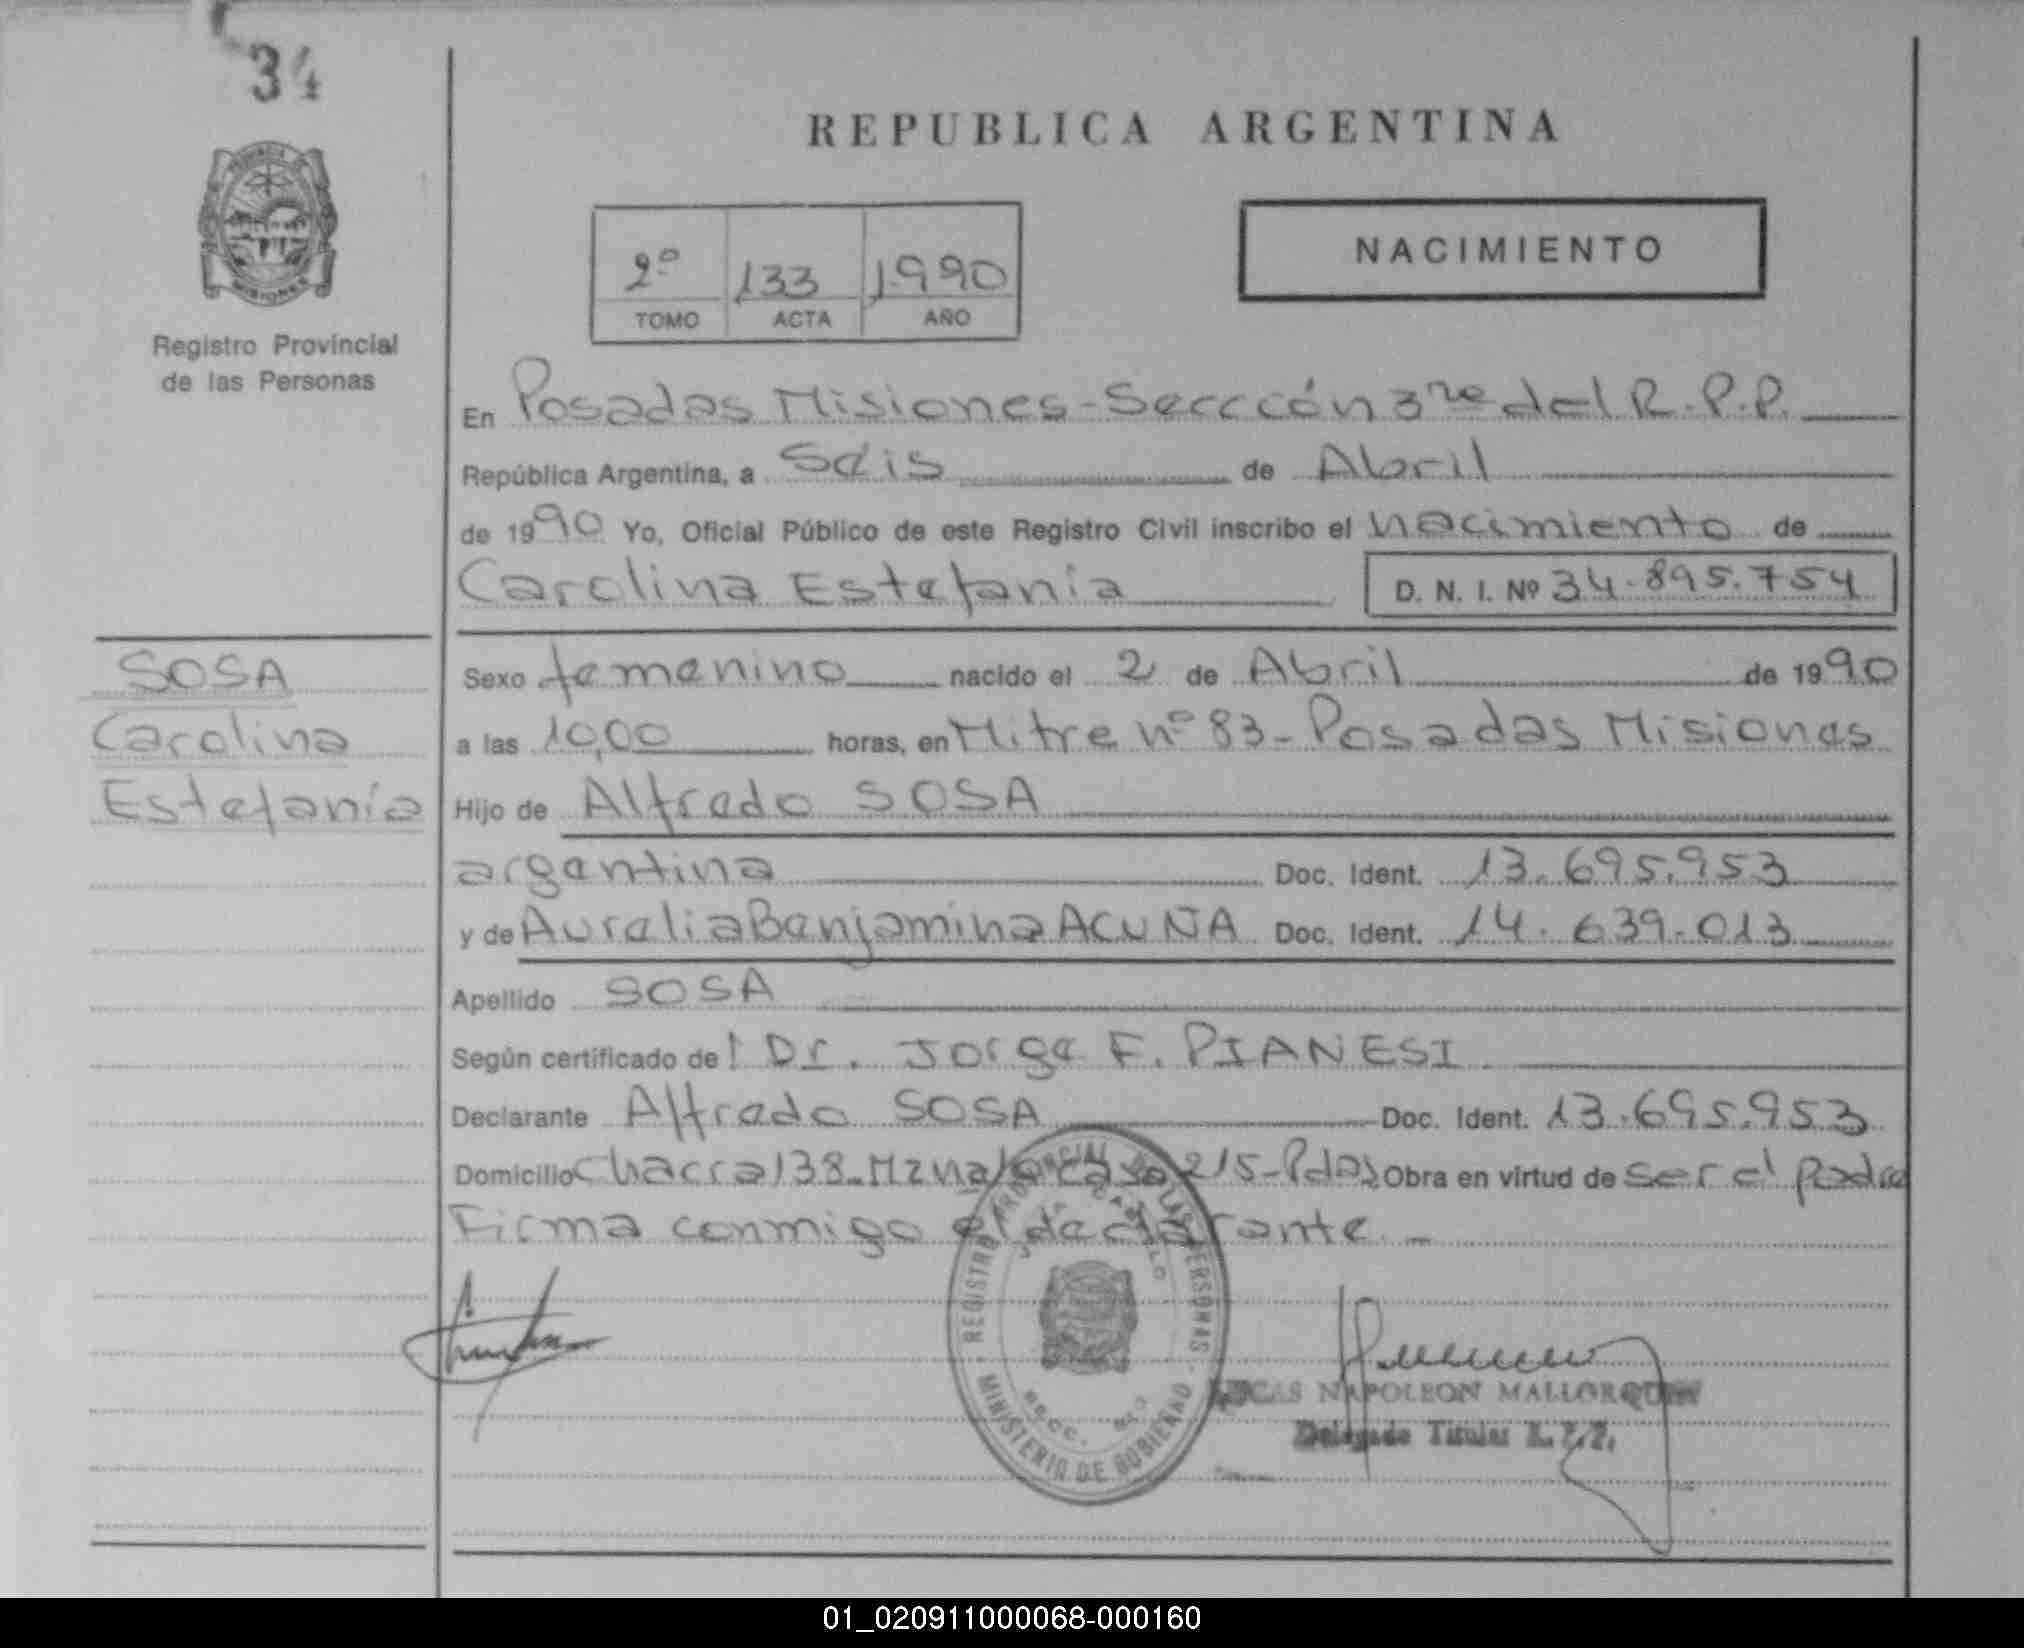 34
REPUBLICA ARGENTINA
2º 133 1990
TOMO ACTA AÑO
NACIMIENTO
PROVINCIA DE
MISIONES
Registro Provincial
de las Personas
En Posadas Misiones-Seccción 3ra del R.P.P.
República Argentina, a Seis de Abril
de 1990 Yo, Oficial Público de este Registro Civil inscribo el nacimiento de
Carolina Estefanía D. N. I. Nº 34.895.754
SOSA
Carolina
Estefanía
Sexo femenino nacido el 2 de Abril de 1990
a las 10,00 horas, en Mitre nº 83- Posadas Misiones
Hijo de Alfredo SOSA
argentina Doc. Ident. 13.695.953
y de Aurelia Benjamina ACUÑA Doc. Ident. 14.639.013
Apellido SOSA
Según certificado del Dr. Jorge F. PIANESI
Declarante Alfredo SOSA Doc. Ident. 13.695.953
Domicilio Chacra 138-Mzna casa 215-Pdas Obra en virtud de ser el padre
Firma conmigo el declarante.-
REGISTRO PROVINCIAL DE LAS PERSONAS
MINISTERIO DE GOBIERNO
LUCAS NAPOLEON MALLORQUIN
Delegado Titular R.P.P.
01_020911000068-000160